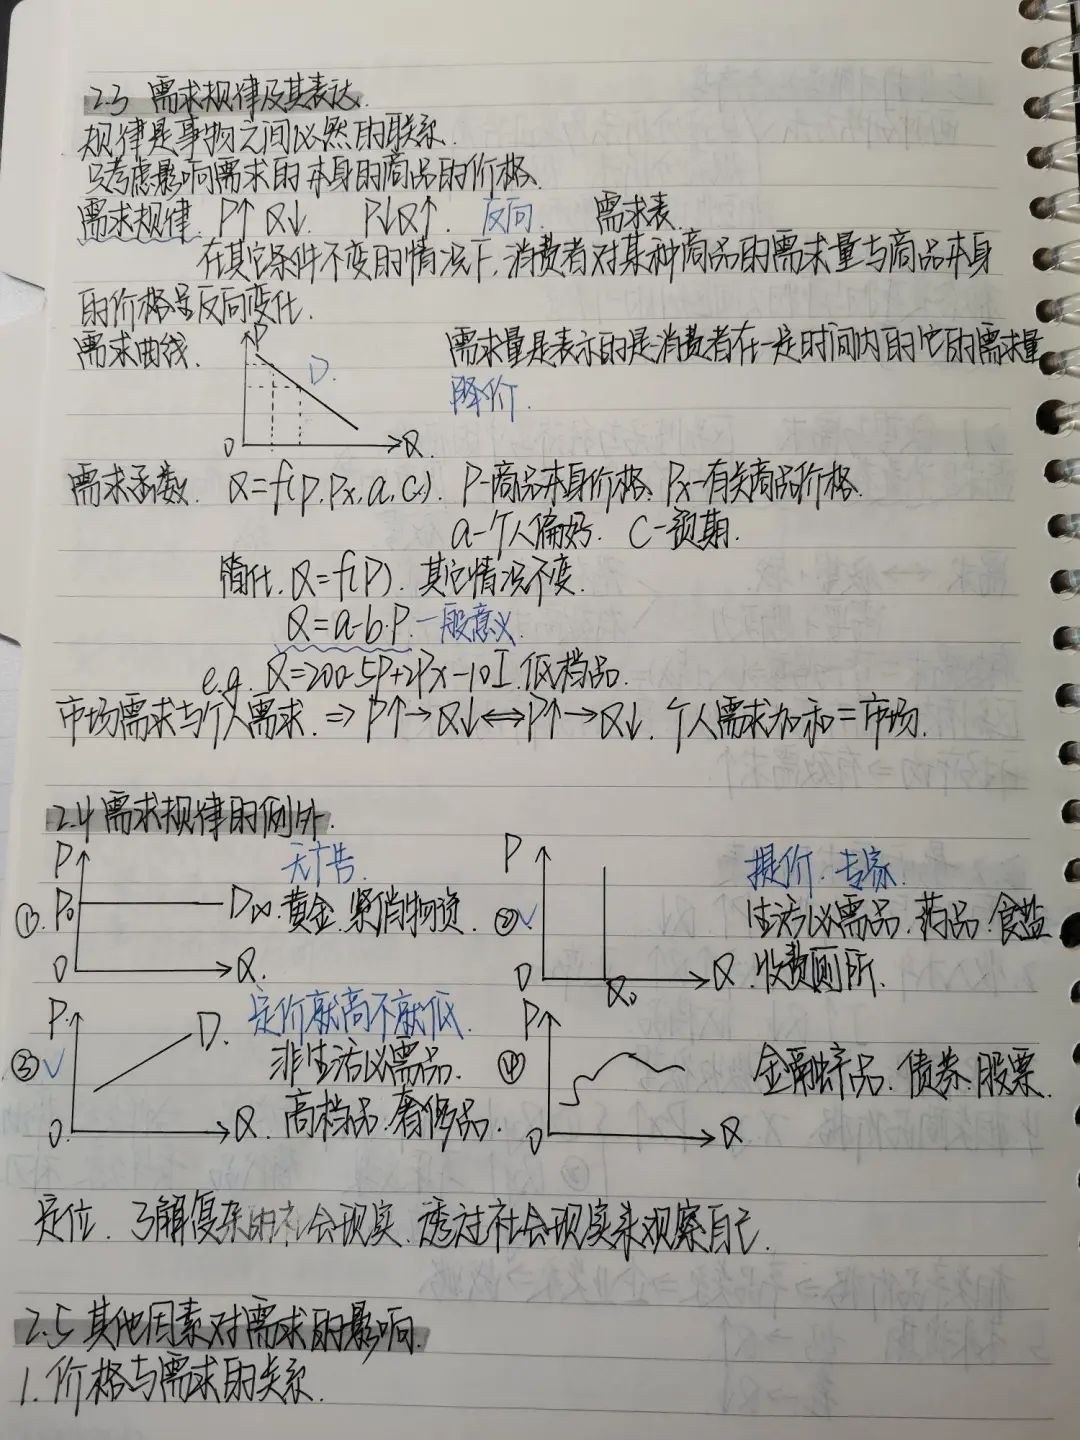 2.3 需求规律及其表达.
规律是事物之间必然的联系.
只考虑影响需求的本身的商品的价格.
需求规律. P↑ Q↓. P↓Q↑. 反向. 需求表.
在其它条件不变的情况下,消费者对某种商品的需求量与商品本身
的价格呈反向变化.
需求曲线. P D. O Q.
需求量是表示的是消费者在一定时间内的它的需求量
降价.
需求函数. Q=f(P.Px,a,C.). P-商品本身价格. Px-有关商品价格.
a-个人偏好. C-预期.
简化. Q=f(P). 其它情况不变.
Q=a-b.P. 一般意义.
e.g. Q=200-5P+2Px-10I.低档品.
市场需求与个人需求. ⇒ P↑→Q↓⇔P↑→Q↓. 个人需求加和=市场.
2.4 需求规律的例外.
① P P0 O Q.
无广告.
D(x).黄金.紧俏物资.
②√ P O Q0 Q
提价.专家.
生活必需品.药品.食盐
.收费厕所.
③√ P. O. D. Q.
定价就高不就低.
非生活必需品.
高档品.奢侈品.
④ P. O Q
金融产品.债券.股票.
定位. 了解复杂的社会现实.透过社会现实来观察自己.
2.5 其他因素对需求的影响.
1.价格与需求的关系.